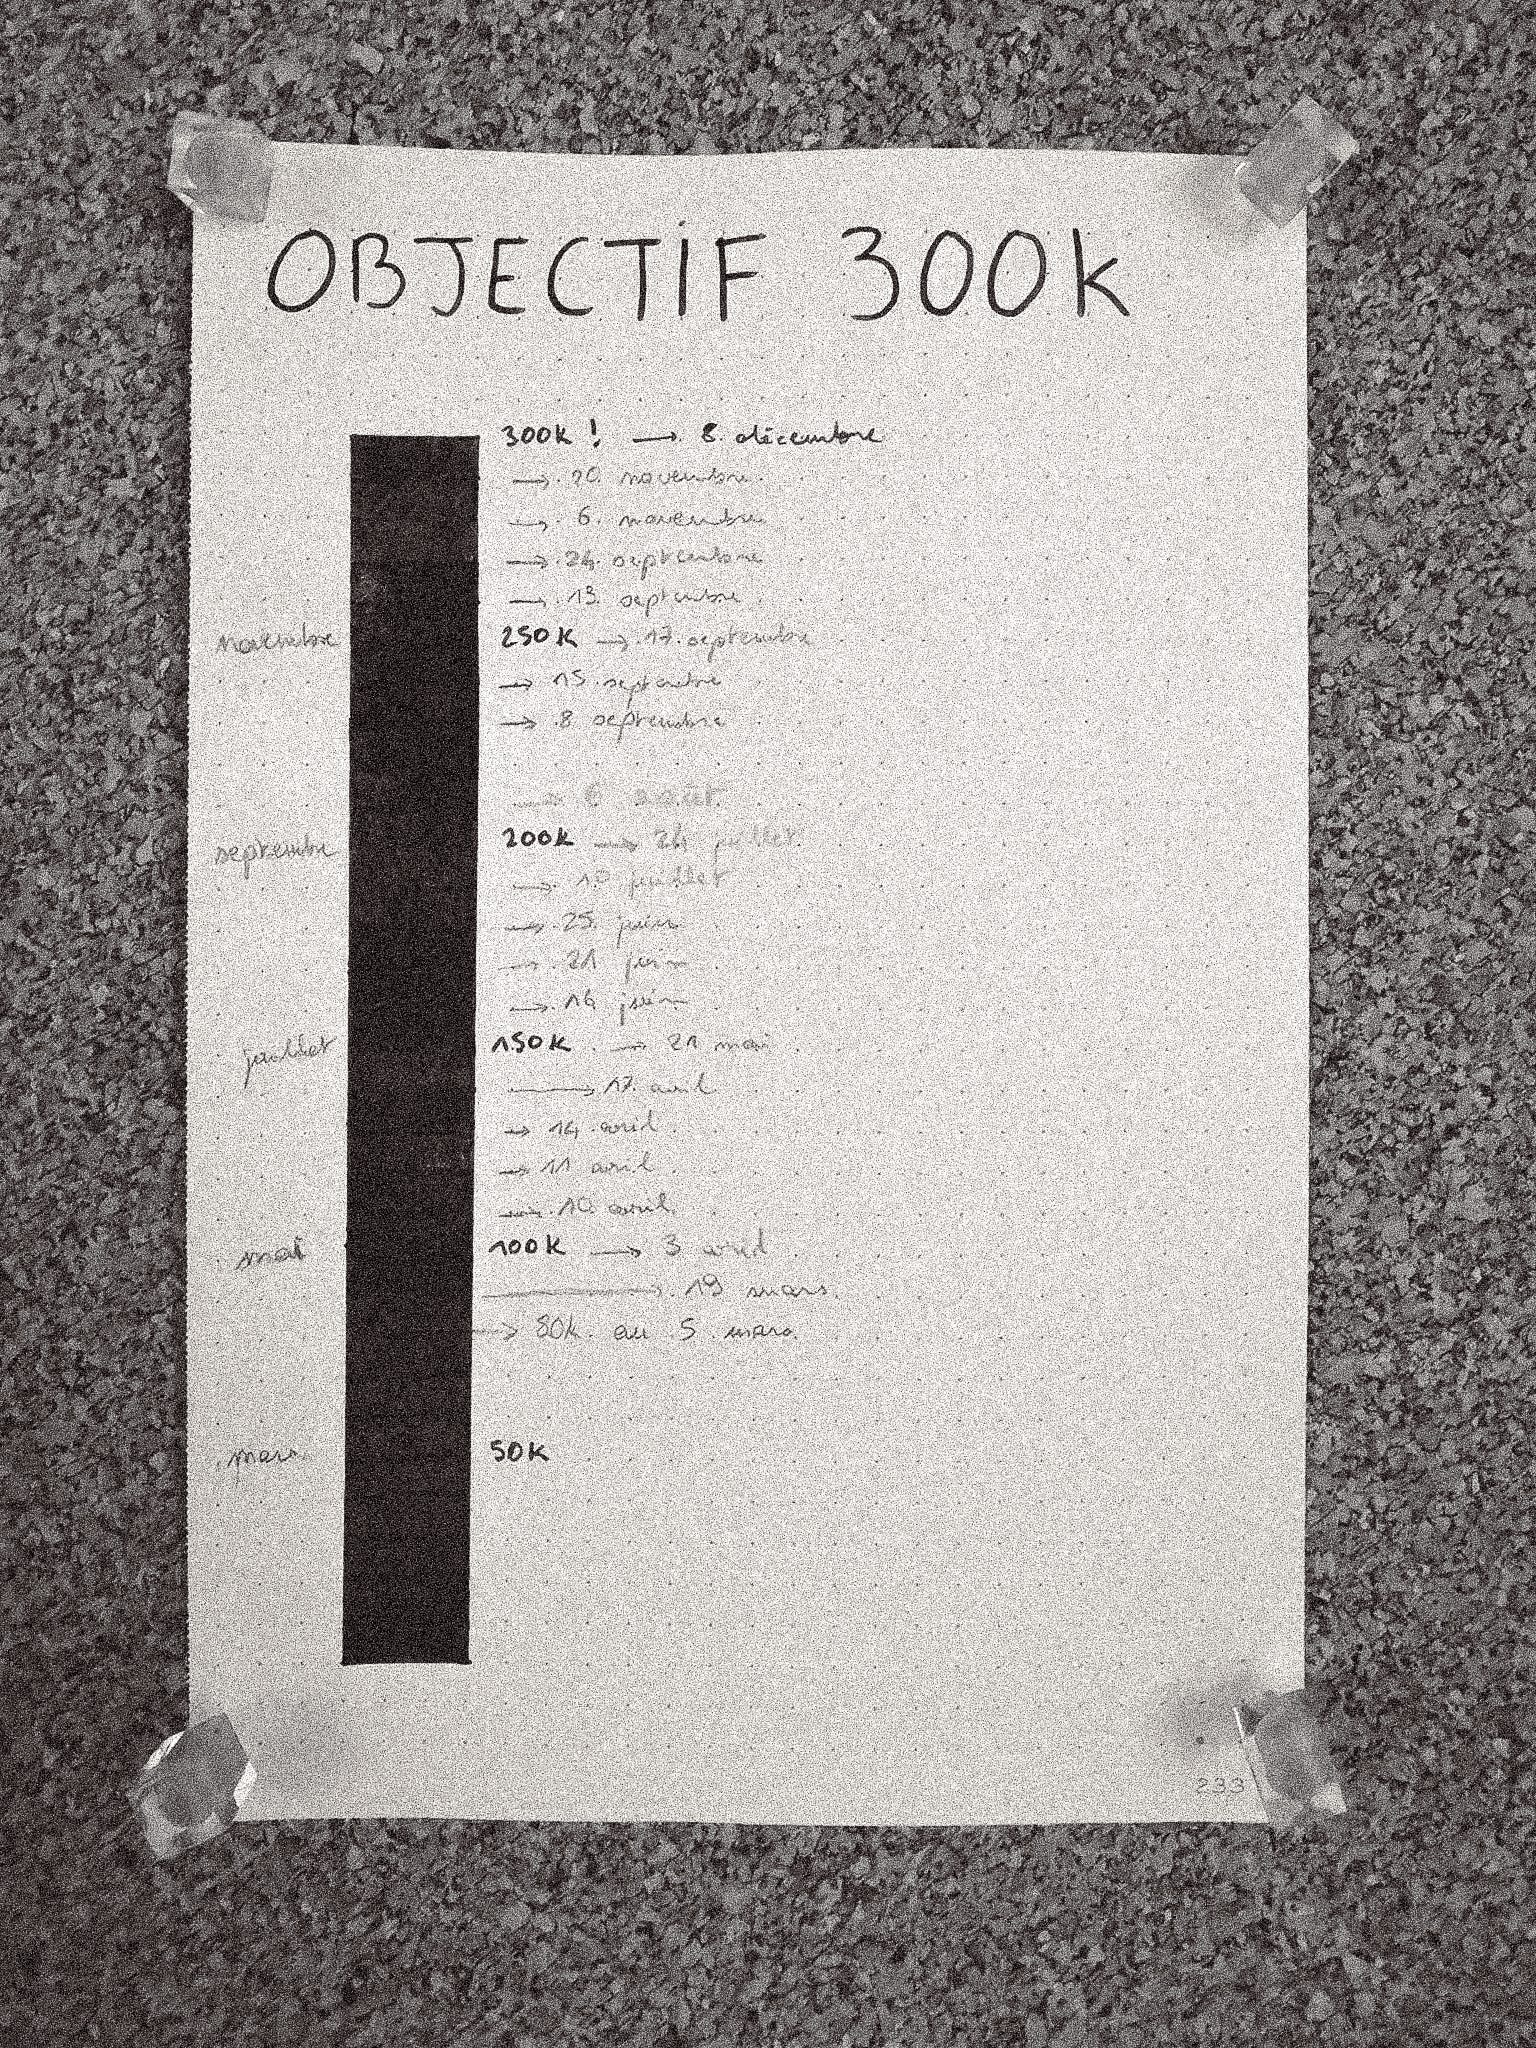 OBJECTIF 300k
300k ! → 8 décembre
→ 20 novembre
→ 6 novembre
→ 24 septembre
→ 13 septembre
novembre 250k → 17 septembre
→ 15 septembre
→ 8 septembre
→ 6 août
septembre 200k → 24 juillet
→ 10 juillet
→ 25 juin
→ 21 juin
→ 14 juin
juillet 150k → 21 mai
→ 17 avril
→ 14 avril
→ 11 avril
→ 10 avril
mai 100k → 3 avril
→ 19 mars
→ 80k au 5 mars
mars 50k
233